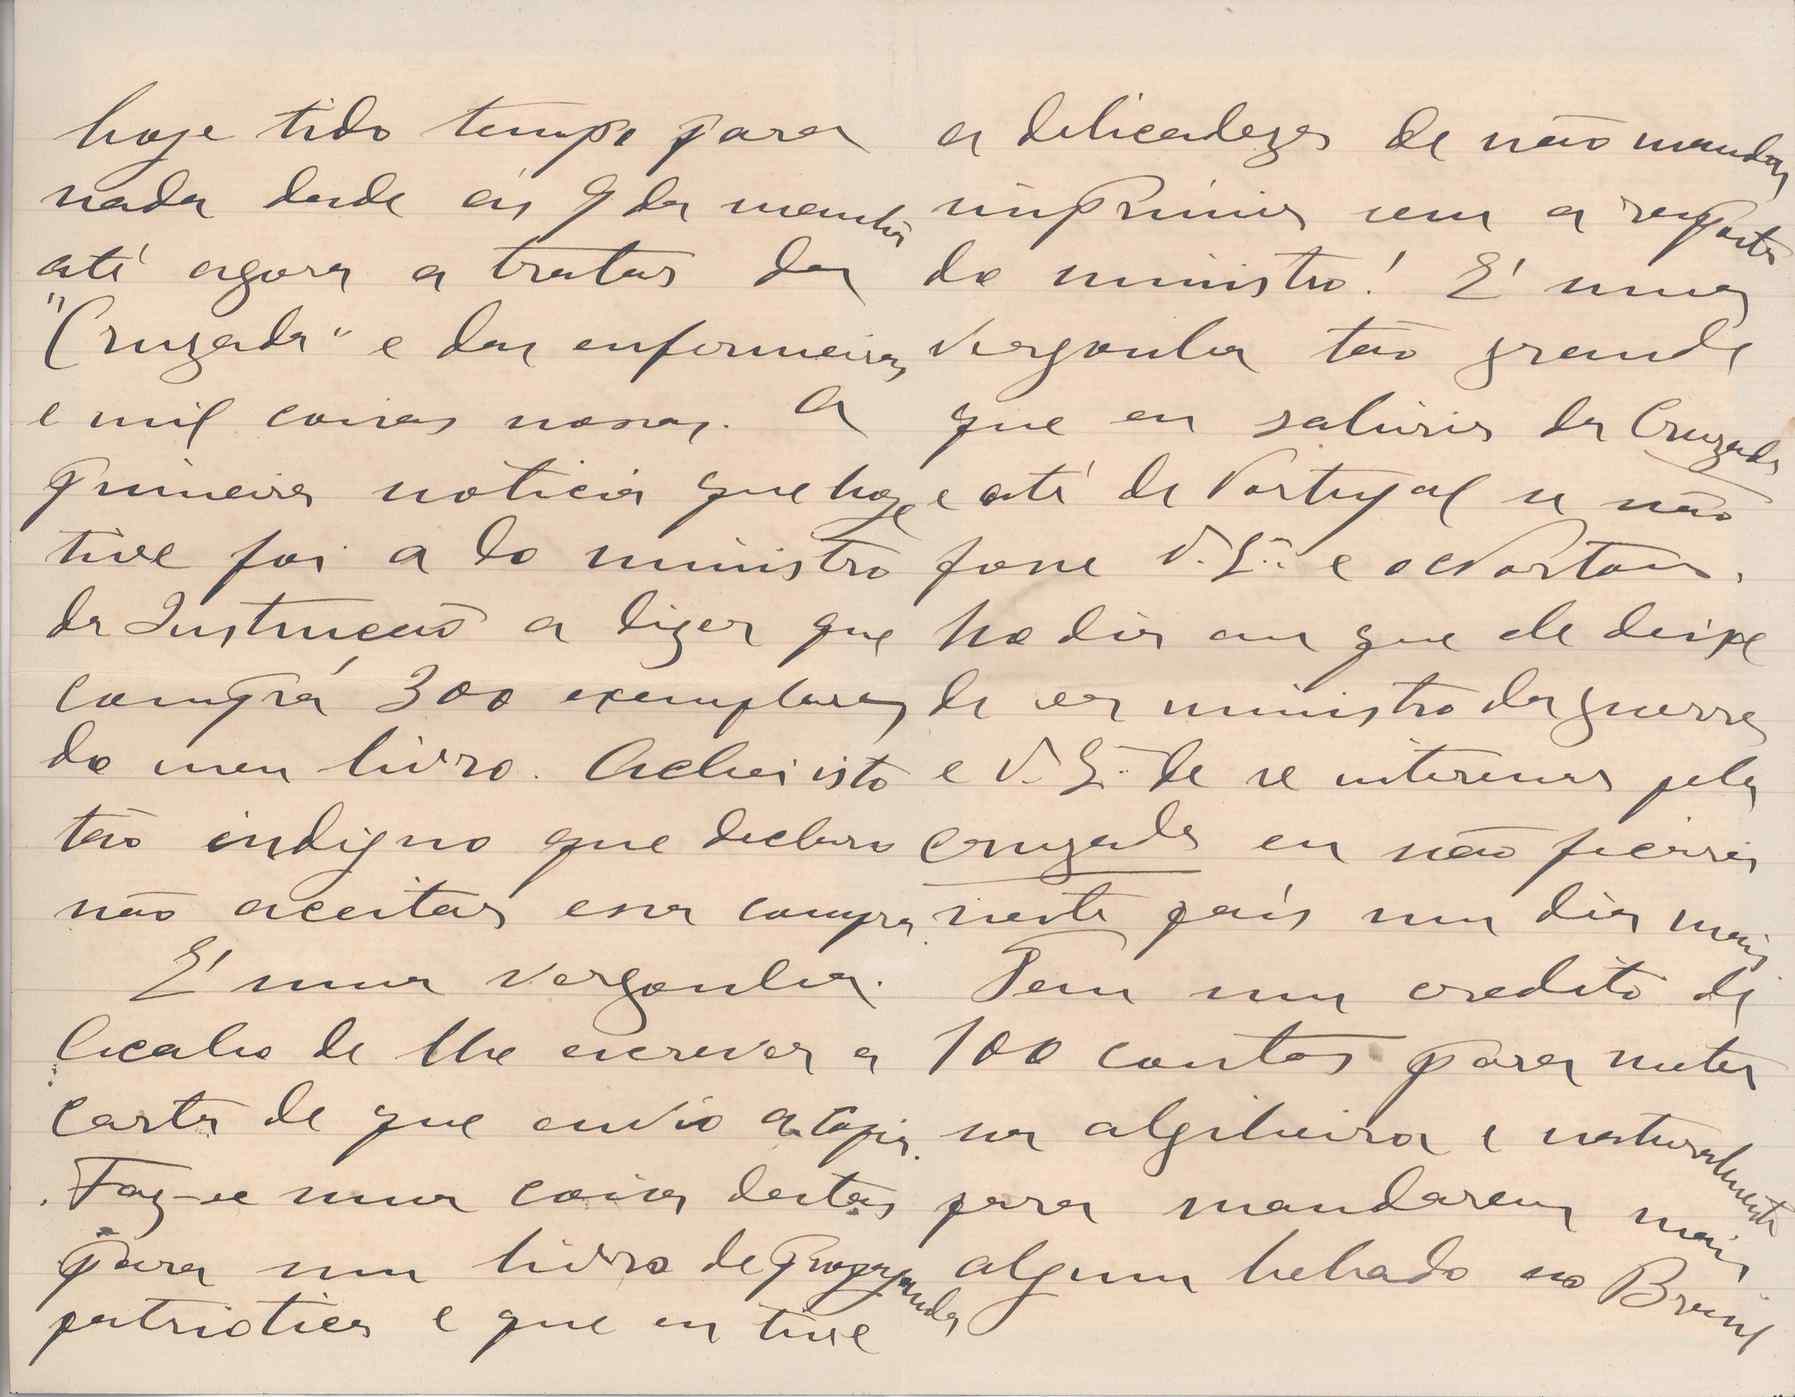 hoje tido tempo para
nada desde ás 9 da manhã
até agora a tratar da
"Cruzada" e das enfermeiras
e mil coisas nossas. A
primeira noticia que hoje
tive foi a do ministro
da Instrucção a dizer que
comprá 300 exemplares
do meu livro. Achei isto
tão indigno que declaro
não aceitar essa compra.
É uma vergonha.
Acabo de lhe escrever a
carta de que envio a copia.
Faz-se uma coisa destas
para um livro de propaganda
patriotica e que eu tive
a delicadeza de não mandar
imprimir sem a resposta
do ministro! É uma
vergonha tão grande
que eu sahiria da Cruzada
e até de Portugal se não
fosse V. Ex.ª e o Norton.
No dia em que ele deixe
de ser ministro da guerra
e V. Ex.ª de se interessar pela
cruzada eu não ficaria
neste país um dia mais
Tem um credito de
100 contos para meter
na algibeira e naturalmente
para mandarem mais
algum bebado ao Brasil